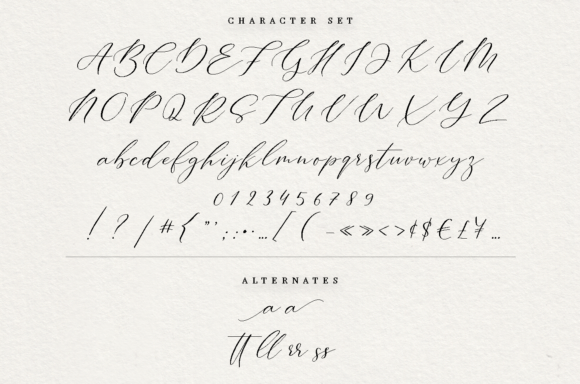 CHARACTER SET
A B C D E F G H I J K L M
N O P Q R S T U V W X Y Z
a b c d e f g h i j k l m n o p q r s t u v w x y z
0 1 2 3 4 5 6 7 8 9
! ? / # { " ' ; : • … [ ( – « » < > ¢ $ € £ ¥ …
ALTERNATES
a a
tt ll rr ss